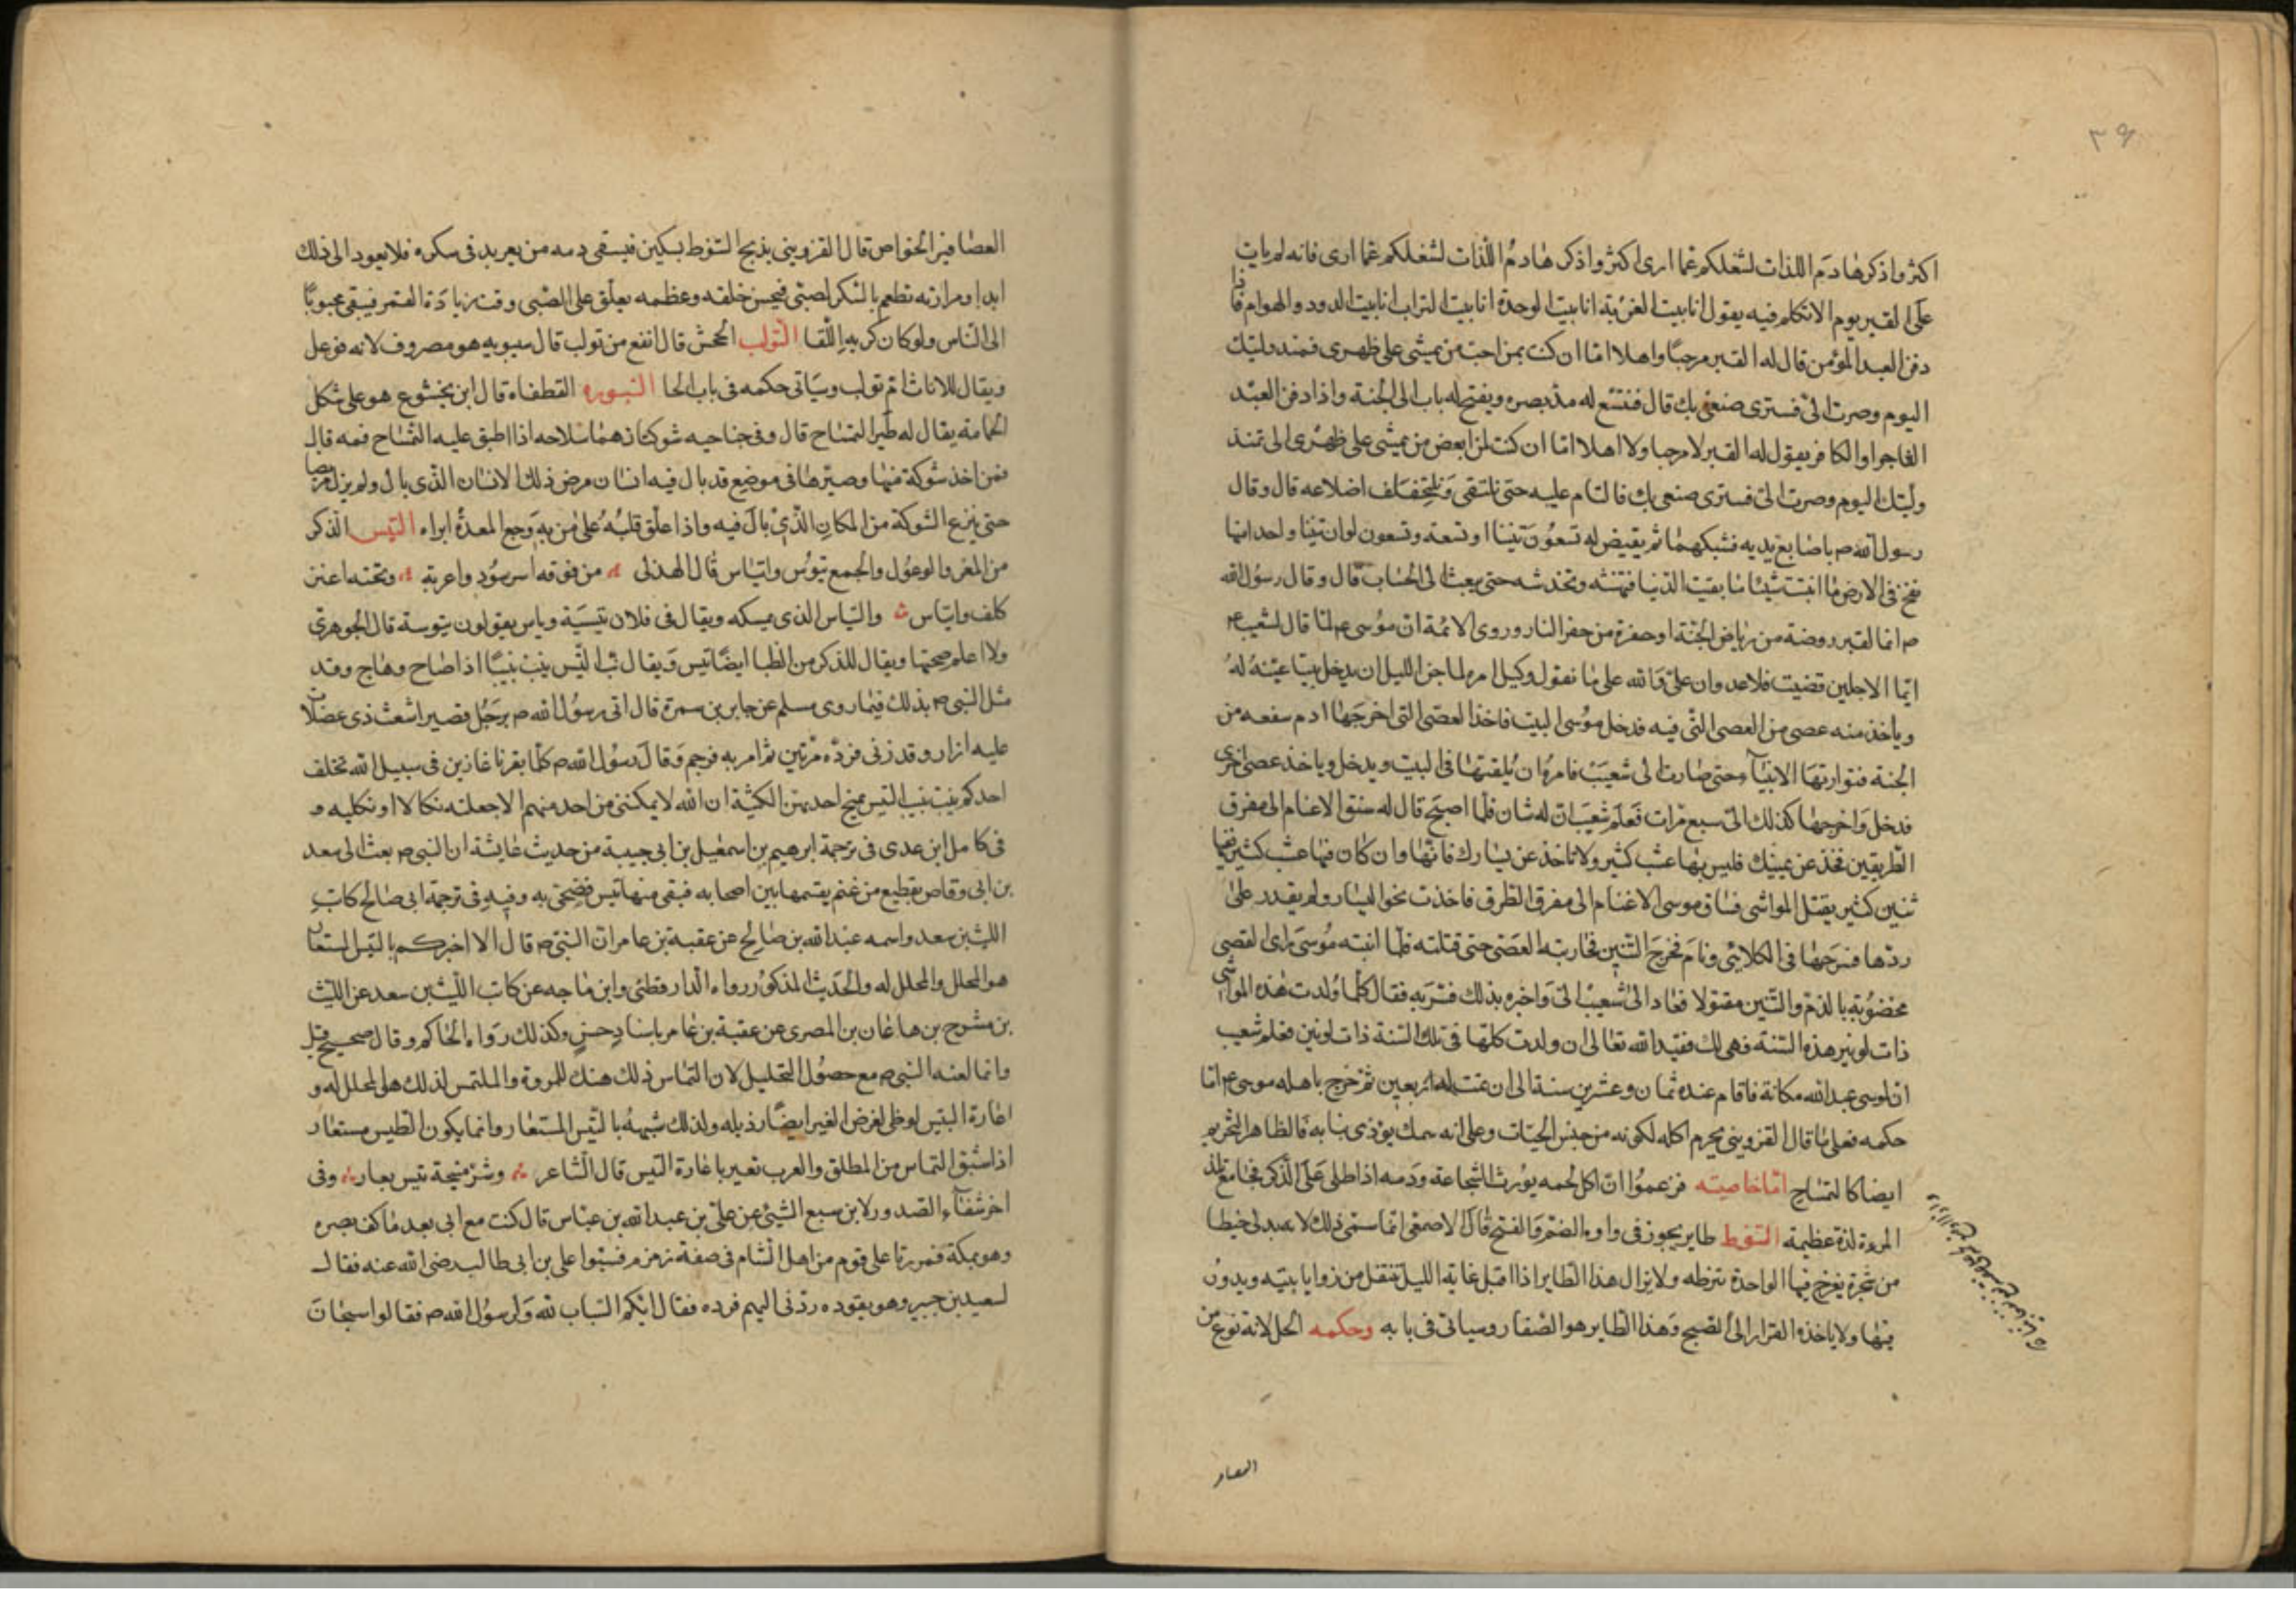 ٣٩
اكثروا ذكر هادم اللذات لشغلكم عما ارى اكثروا ذكر هادم اللذات لشغلكم عما ارى فانه لم يات
على القبر يوم الا تكلم فيه يقول انا بيت الغربة انا بيت الوحدة انا بيت التراب انا بيت الدود والهوام فاذا
دفن العبد المؤمن قال له القبر مرحبا واهلا اما ان كنت لمن احب من يمشى على ظهرى فمنذ وليتك
اليوم وصرت الى فسترى صنعى بك قال فتتسع له مد بصره ويفتح له باب الى الجنة واذا دفن العبد
الفاجر او الكافر يقول له القبر لا مرحبا ولا اهلا اما ان كنت لمن ابغض من يمشى على ظهرى الى فمنذ
وليتك اليوم وصرت الى فسترى صنعى بك فالتام عليه حتى تلتقى وتختلف اضلاعه قال وقال
رسول الله ص باصابع يديه فشبكهما ثم يقيض له تسعون تنينا او تسعة وتسعون لو ان تنينا واحدا منها
نفخ فى الارض ما انبتت شيئا ما بقيت الدنيا فتنهشه وتخدشه حتى يبعث الى الحساب قال وقال رسول الله
ص انما القبر روضة من رياض الجنة او حفرة من حفر النار وروى الائمة ان موسى ع لما قال لشعيب ع
ايما الاجلين قضيت فلا عدوان على والله على ما نقول وكيل امر لما جن الليل ان يدخل بيتا عينه له
وياخذ منه عصى من العصى التى فيه فدخل موسى البيت فاخذ العصى التى اخرجها ادم معه من
الجنة فتوارثها الانبيآء حتى صارت الى شعيب فامره ان يلقيها فى البيت ويدخل وياخذ عصى اخرى
فدخل واخرجها كذلك الى سبع مرات فعلم شعيب ان له شان فلما اصبح قال له سق الاغنام الى مفرق
الطريقين فخذ عن يمينك فليس بها عشب كثير ولا تاخذ عن يسارك فانها وان كان فيها عشب كثير ففيها
تنين كثير يقتل المواشى فساق موسى الاغنام الى مفرق الطرق فاخذت نحو اليسار ولم يقدر على
ردها فسرحها فى الكلا ونام فخرج التنين فحاربته العصى حتى قتلته فلما انتبه موسى راى العصى
مخضوبة بالدم والتنين مقتولا فعاد الى شعيب واخبره بذلك فسر به فقال كلما ولدت هذه المواشى
ذات لونين هذه السنة فهى لك فقيد الله تعالى ان ولدت كلها فى تلك السنة ذات لونين فعلم شعيب
ان لموسى عند الله مكانة فاقام عنده ثمان وعشرين سنة الى ان تمت له اربعين ثم خرج باهله موسى ع اما
حكمه فعلى ما قال القزوينى يحرم اكله لكونه من جنس الحيات وعلى انه سمك يؤذى بنابه فالظاهر التحريم
ايضا كالتمساح اما خاصيته فزعموا ان اكل لحمه يورث الشجاعة ودمه اذا طلى على الذكر فجامع تلذ
المروة لذة عظيمة التنوط طاير يجوز فى واوه الضم والفتح قال الاصمعى انما سمى ذلك لانه يدلى خيطا
من شجرة يفرخ فيها الواحدة تنوطه ولا يزال هذا الطاير اذا اقبل غاية الليل تنقل من زوايا بيته ويدور
فيها ولا ياخذه القرار الى الصبح وهذا الطاير هو الصفار وسياتى فى بابه وحكمه الحل لانه نوع من
العصافر
العصافير الخواص قال القزوينى يذبح التنوط بسكين فيسقى دمه من يعربد فى سكره فلا يعود الى ذلك
ابدا ومرارته تطعم بالسكر لصبى فيحسن خلقه وعظمه يعلق على الصبى وقت زيادة القمر فيبقى محبوبا
الى الناس ولو كان كريه اللقا التولب الجحش قال انفع من تولب قال سيبويه هو مصروف لانه فوعل
ويقال للاناث ام تولب وسياتى حكمه فى باب الحا التبوره القطفاه قال ابن بختشوع هو على شكل
الحمامة يقال له طير التمساح قال وفى جناحيه شوكتان هما سلاحه اذا اطبق عليه التمساح فمه قال
فمن اخذ شوكة منها وصيرها فى موضع قد بال فيه انسان مرض ذلك الانسان الذى بال ولم يزل مريضا
حتى ينزع الشوكة من المكان الذى بال فيه واذا علق قلبه على من به وجع المعدة ابراه التيس الذكر
من المعز والوعول والجمع تيوس واتياس قال الهذلى من فوقه انسر سود واغربة وتحته اعنز
كلف واتياس والتياس الذى يمسكه ويقال فى فلان تيسية وناس يقولون تيوسة قال الجوهرى
ولا اعلم صحتها ويقال للذكر من الظبا ايضا تيس ويقال نب التيس ينب نبيبا اذا صاح وهاج وقد
مثل النبى ص بذلك فيما روى مسلم عن جابر بن سمرة قال اتى رسول الله ص برجل قصير اشعث ذى عضلات
عليه ازار وقد زنى فرده مرتين ثم امر به فرجم وقال رسول الله ص كلما نفرنا غازين فى سبيل الله تخلف
احدكم ينب نبيب التيس يمنح احديهن الكثبة ان الله لا يمكننى من احد منهم الا جعلته نكالا او نكلته و
فى كامل ابن عدى فى ترجمة ابرهيم بن اسمعيل بن ابى حبيبة من حديث عايشة ان النبى ص بعث الى سعد
بن ابى وقاص بقطيع من غنم يقسمها بين اصحابه فبقى منها تيس فضحى به وفيه فى ترجمة ابى صالح كاتب
الليث بن سعد واسمه عبد الله بن صالح عن عقبة بن عامر ان النبى ص قال الا اخبركم بالتيس المستعار
هو المحلل والمحلل له والحديث المذكور رواه الدارقطنى وابن ماجه عن كاتب الليث بن سعد عن الليث
بن مشرح بن هاعان بن المصرى عن عقبة بن عامر باسناد حسن وكذلك رواه الحاكم وقال صحيح قيل
وانما لعنه النبى ص مع حصول التحليل لان التماس ذلك هتك للمروة والملتمس لذلك هو المحلل له و
اعارة التيس لوطى لغرض الغير ايضا رذيله ولذلك شبهه بالتيس المستعار وانما يكون التيس مستعار
اذا سبق التماس من المطلق والعرب تعير باعارة التيس قال الشاعر وشر منيحة تيس يعار وفى
اخر شفآء الصدور لابن سبع السبتى عن على بن عبد الله بن عباس قال كنت مع ابى بعد ما كف بصره
وهو بمكة فمررنا على قوم من اهل الشام فى صفة زمزم فسبوا على بن ابى طالب رضى الله عنه فقال
لسعيد بن جبير وهو يقوده ردنى اليهم فرده فقال ايكم الساب لله ولرسول الله ص فقالوا سبحان